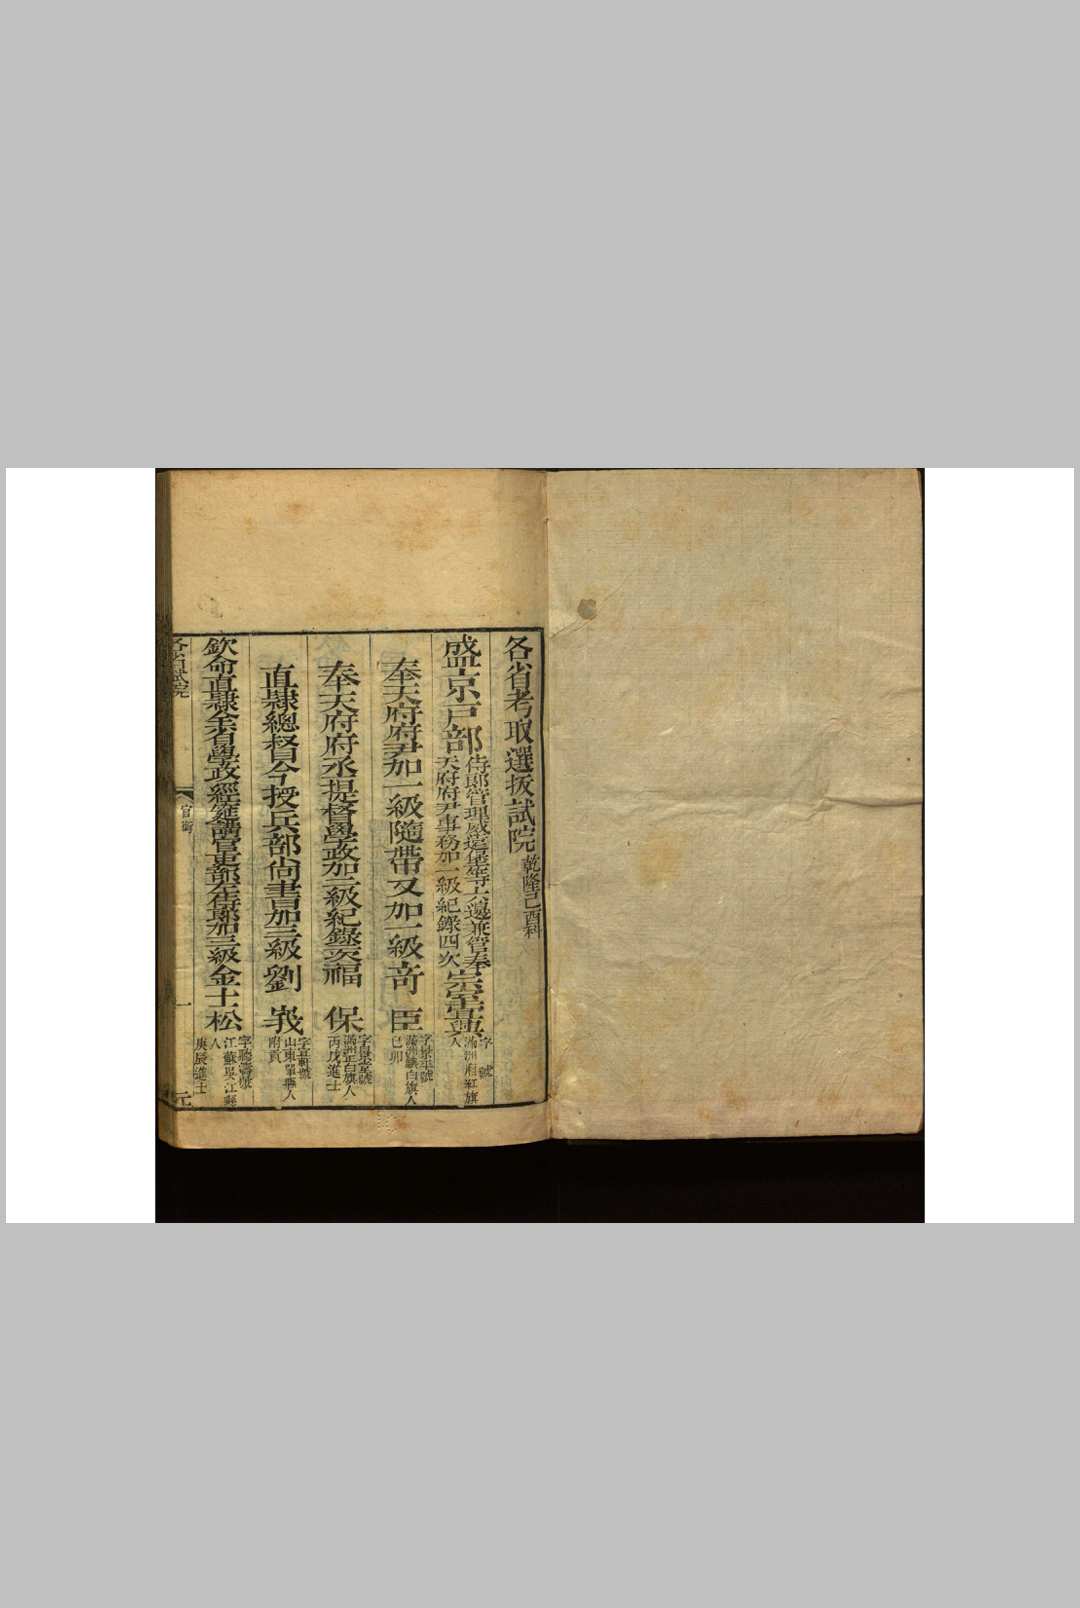 各省考取選拔試院 乾隆己酉科
盛京戶部侍郎管理威遠堡等六邊兼管奉天府府尹事務加一級紀錄四次宗室宜興 字 號 滿洲廂紅旗人
奉天府府尹加一級隨帶又加一級奇 臣 字 號 滿洲 白旗人 己卯
奉天府府丞提督學政加三級紀錄 次福 保 字 堂號 滿洲正白旗人 丙戌進士
直隸總督今授兵部尚書加三級劉 峩 字 軒號 山東單縣人 附貢
欽命直隸全省學政經筵講官吏部左侍郎加三級金士松 字聽濤號 江蘇吳江縣人 庚辰進士
各省試院 官銜 一 元